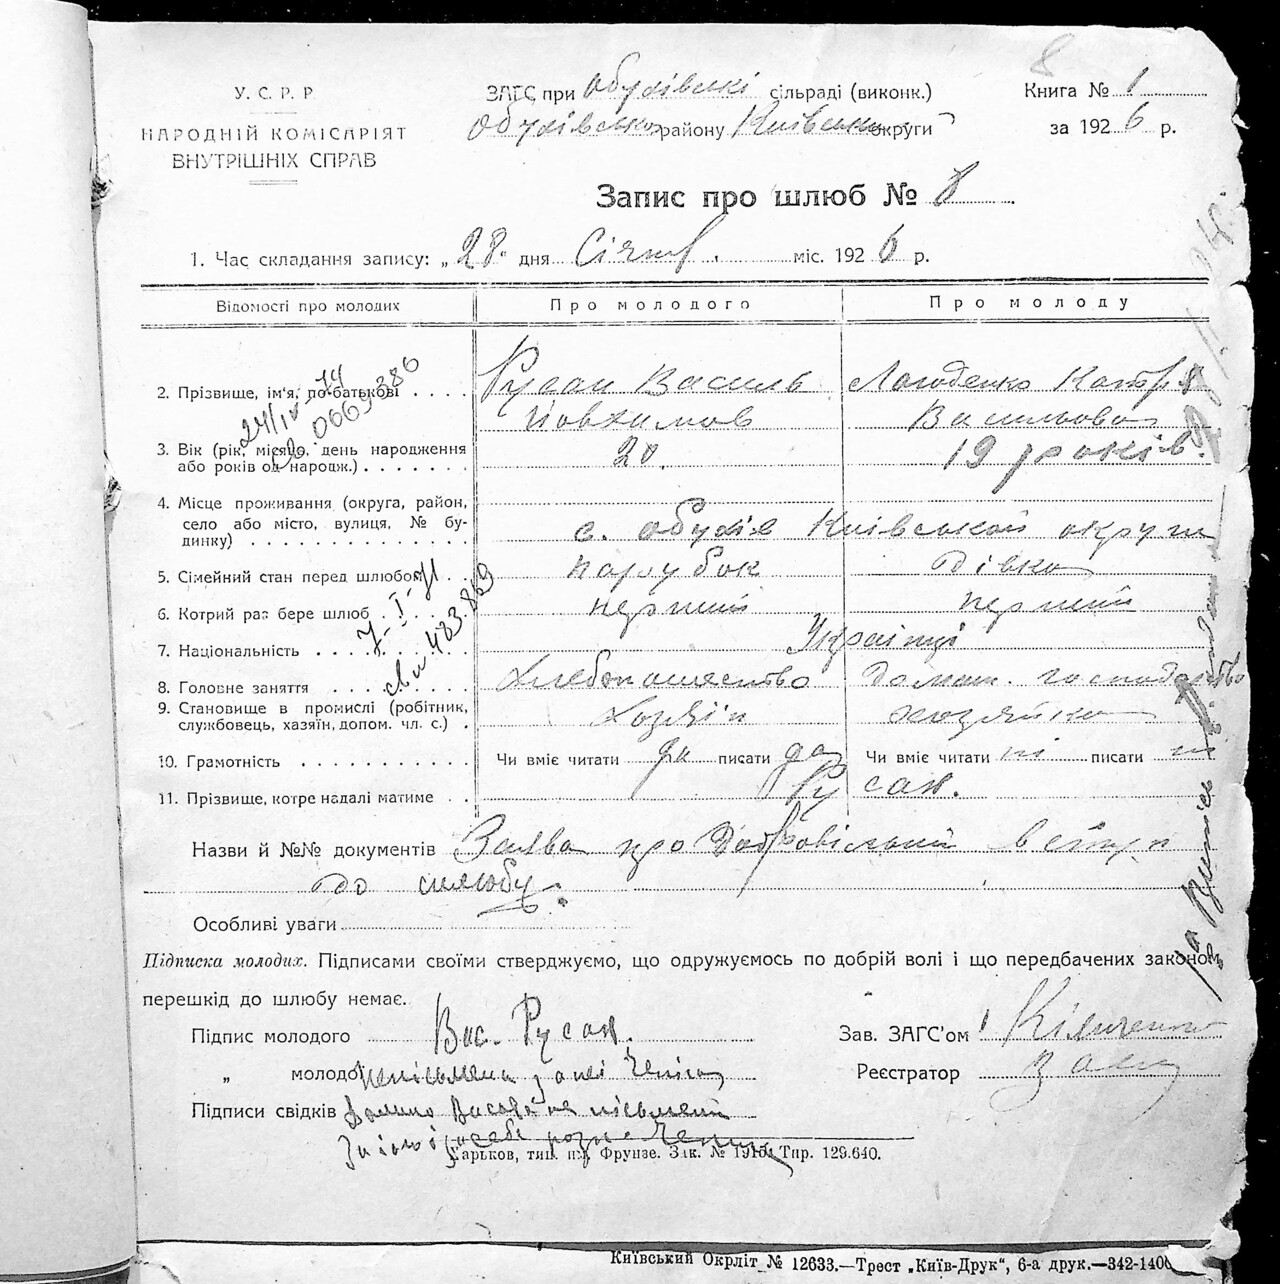 8
У. С. Р. Р.
НАРОДНІЙ КОМІСАРІЯТ
ВНУТРІШНІХ СПРАВ
ЗАГС при Обухівські сільраді (виконк.)
Обухівсько району Київсько округи
Книга № 1
за 1926 р.
Запис про шлюб № 8
1. Час складання запису: „28" дня Січня міс. 1926 р.
Відомості про молодих
Про молодого
Про молоду
2. Прізвище, ім'я, по-батькові
Русан Василь
Йовхимов
Катря
Васильова
3. Вік (рік, місяць, день народження
або років од народж.)
20.
19 років.
4. Місце проживання (округа, район,
село або місто, вулиця, № бу-
динку)
с. Обухів Київської округи
5. Сімейний стан перед шлюбом
парубок
дівка
6. Котрий раз бере шлюб
перший
перший
7. Національність
Українці
8. Головне заняття
Хлебопашество
Домаш. господарство
9. Становище в промислі (робітник,
службовець, хазяїн, допом. чл. с.)
Хозяін
хозяйка
10. Грамотність
Чи вміє читати да писати да
Чи вміє читати ні писати ні
11. Прізвище, котре надалі матиме
Русан.
Назви й №№ документів Заява про Добровільний вступ
до шлюбу.
Особливі уваги
Підписка молодих. Підписами своїми стверджуємо, що одружуємось по добрій волі і що передбачених законом
перешкід до шлюбу немає.
Підпис молодого Вас. Русан.
„ молодої
Підписи свідків
Зав. ЗАГС'ом
Реєстратор
Харьков, тип. им. Фрунзе. Зак. № 1910. Тир. 129.640.
Київський Окрліт № 12633.—Трест „Київ-Друк", 6-а друк.—342-1400